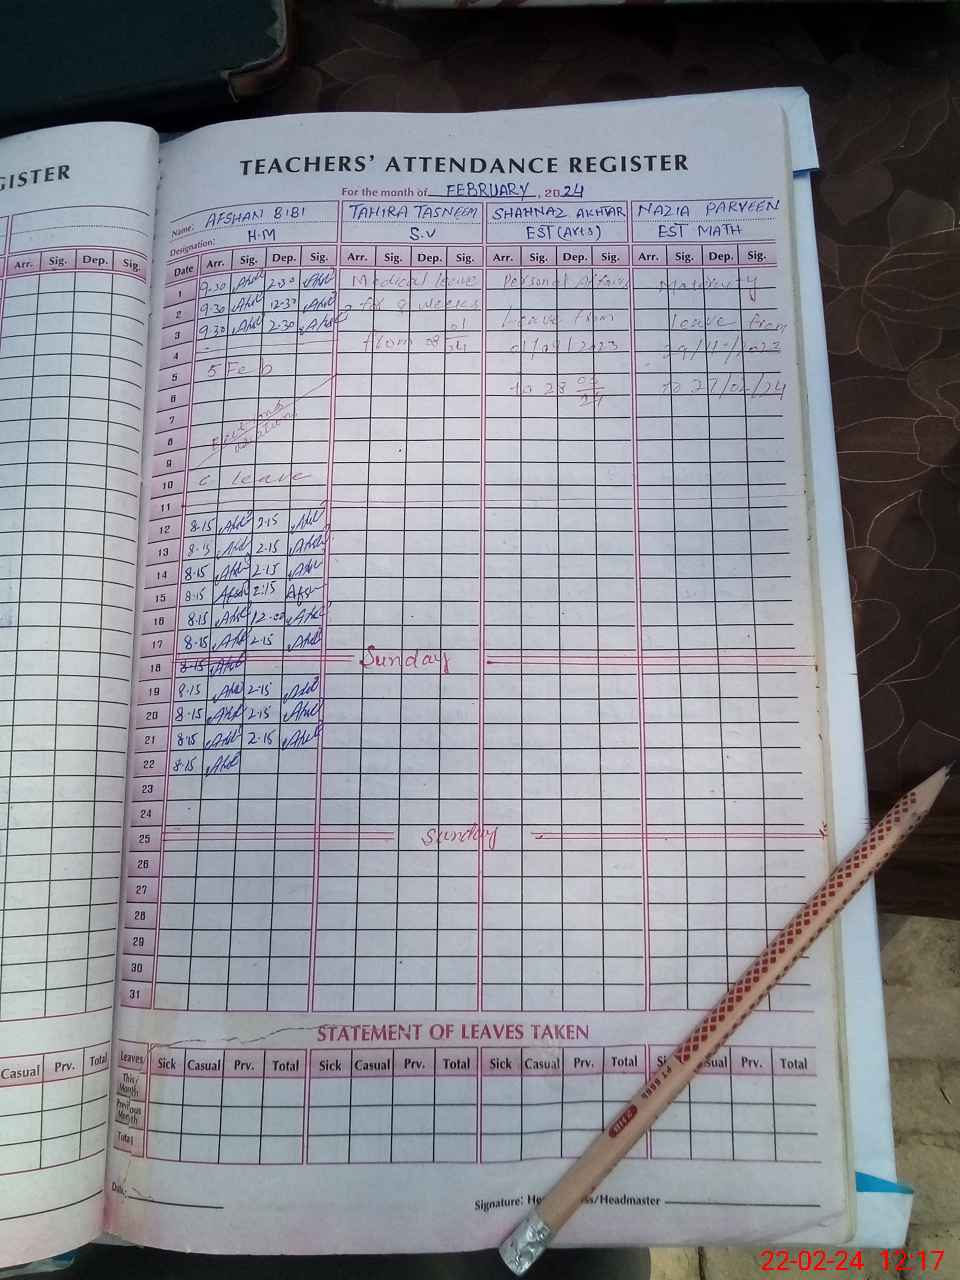 GISTER
TEACHERS' ATTENDANCE REGISTER
For the month of FEBRUARY, 2024
Name: AFSHAN BIBI TAHIRA TASNEEM SHAHNAZ AKHTAR NAZIA PARVEEN
Designation: H.M S.V EST (Arts) EST MATH
Arr. Sig. Dep. Sig. Date Arr. Sig. Dep. Sig. Arr. Sig. Dep. Sig. Arr. Sig. Dep. Sig. Arr. Sig. Dep. Sig.
1 9.30 2.30 Medical leave Personal Affairs Maternity
2 9.30 12.30 for 8 weeks Leave from leave from
3 9.30 2.30 from 08 01/24 01/09/2023
4
5 5 Feb to 28 to 27/02/24
6
7
8
9
10 C leave
11
12 8.15 2.15
13 8.15 2.15
14 8.15 2.15
15 8.15 2:15
16 8.15 12.00
17 8.15 2.15
18 8.15 Sunday
19 8.15 2.15
20 8.15 2.15
21 8.15 2.15
22 8.15
23
24
25 Sunday
26
27
28
29
30
31
STATEMENT OF LEAVES TAKEN
Casual Prv. Total Leaves Sick Casual Prv. Total Sick Casual Prv. Total Sick Casual Prv. Total Casual Prv. Total
This Month
Previous Month
Total
Date:
Signature: Headmaster
22-02-24 12:17